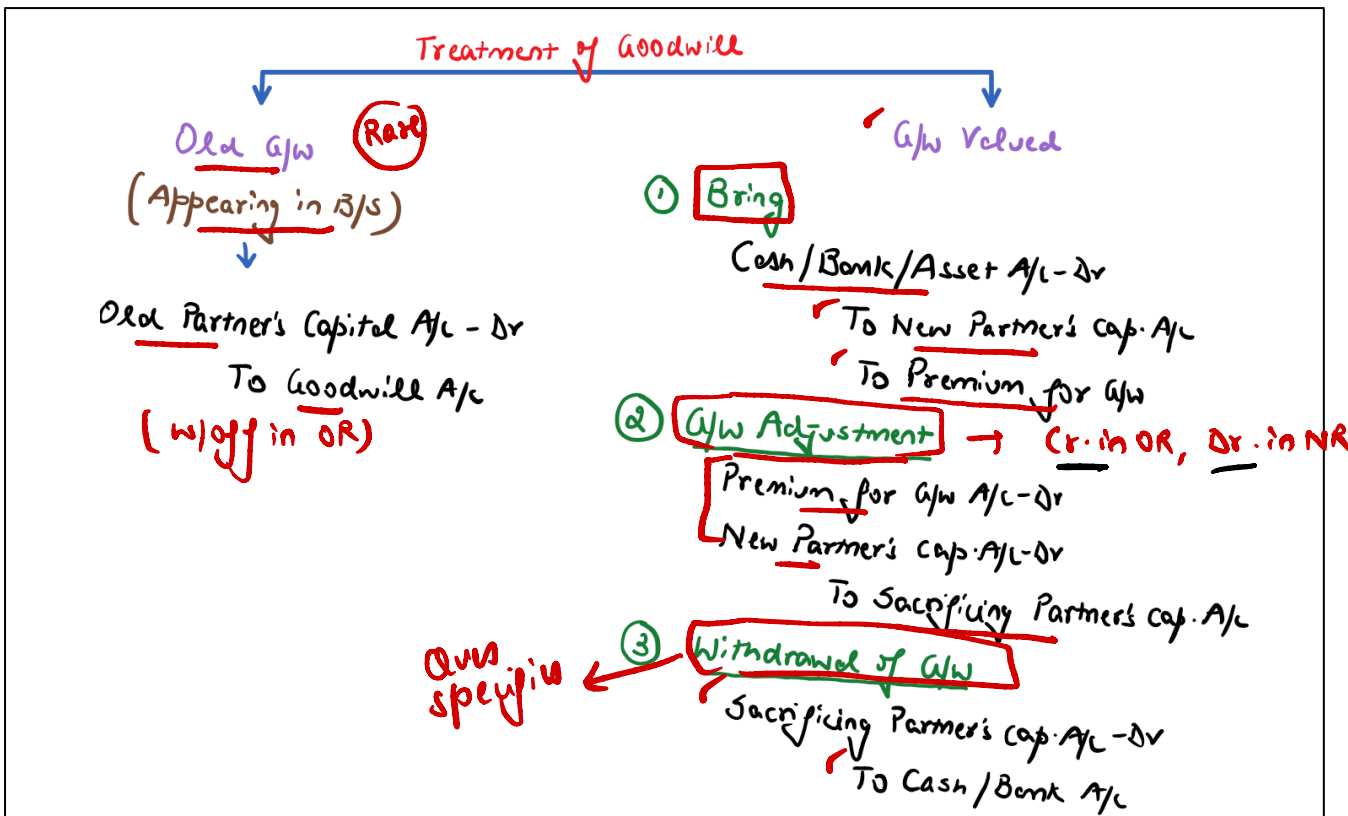 Treatment of Goodwill
Old G/w
Rare
(Appearing in B/S)
Old Partner's Capital A/c - Dr
To Goodwill A/c
(w/off in OR)
G/w Valued
① Bring
Cash/Bank/Asset A/c - Dr
To New Partner's cap. A/c
To Premium for G/w
② G/w Adjustment → Cr. in OR, Dr. in NR
Premium for G/w A/c - Dr
New Partner's cap. A/c - Dr
To Sacrificing Partner's cap. A/c
③ Withdrawal of G/w
Ques
specifies
Sacrificing Partner's cap. A/c - Dr
To Cash/Bank A/c